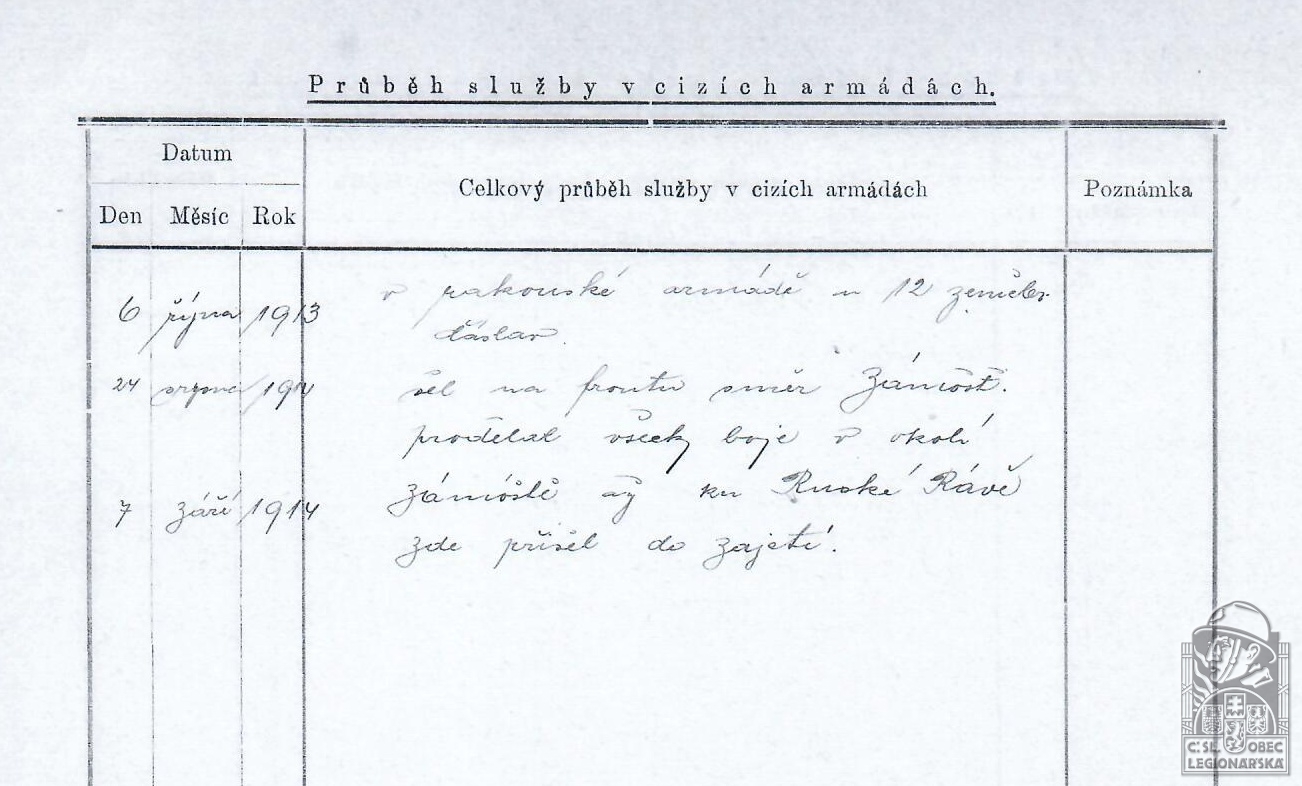 Průběh služby v cizích armádách.
Datum
Celkový průběh služby v cizích armádách
Poznámka
Den Měsíc Rok
6 října 1913 v rakouské armádě u 12 zeměbr.
Čáslav.
24 srpna 1914 šel na frontu směr Zámošť.
prodělal všecky boje v okolí
7 září 1914 Zámóště až ku Ruské Rávě
zde přišel do zajetí.
Č. SL. OBEC
LEGIONÁŘSKÁ